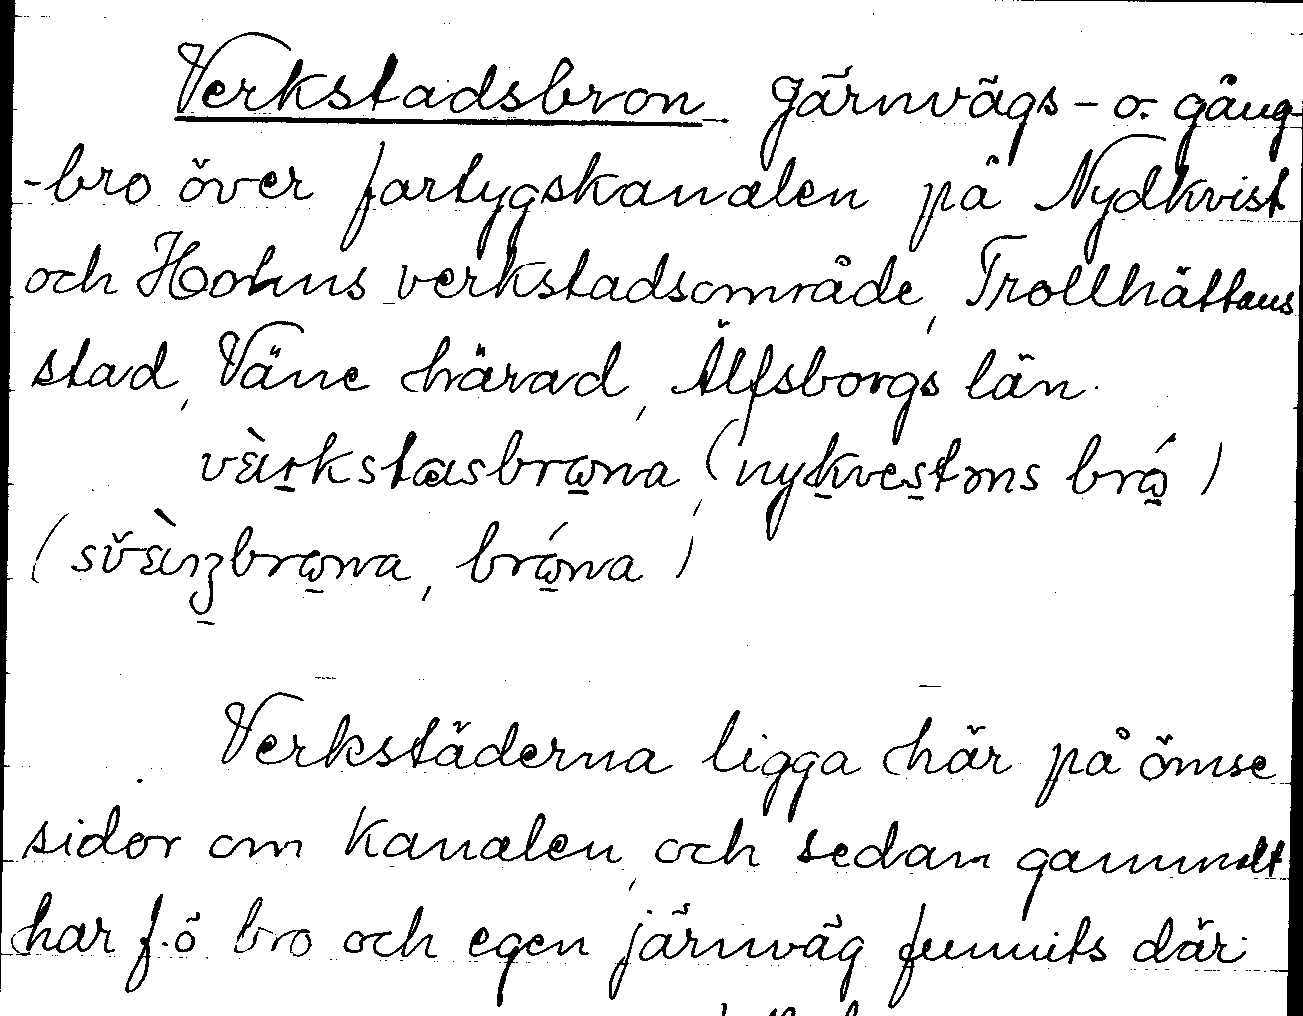 Verkstadsbron Järnvägs- o. gång-
-bro över fartygskanalen på Nydkvist
och Holms verkstadsområde, Trollhättans
stad, Väne härad, Älfsborgs län.
(nykvestɔns
(
Verkstäderna ligga här på ömse
sidor om kanalen, och sedan gammalt
har f.ö bro och egen järnväg funnits där